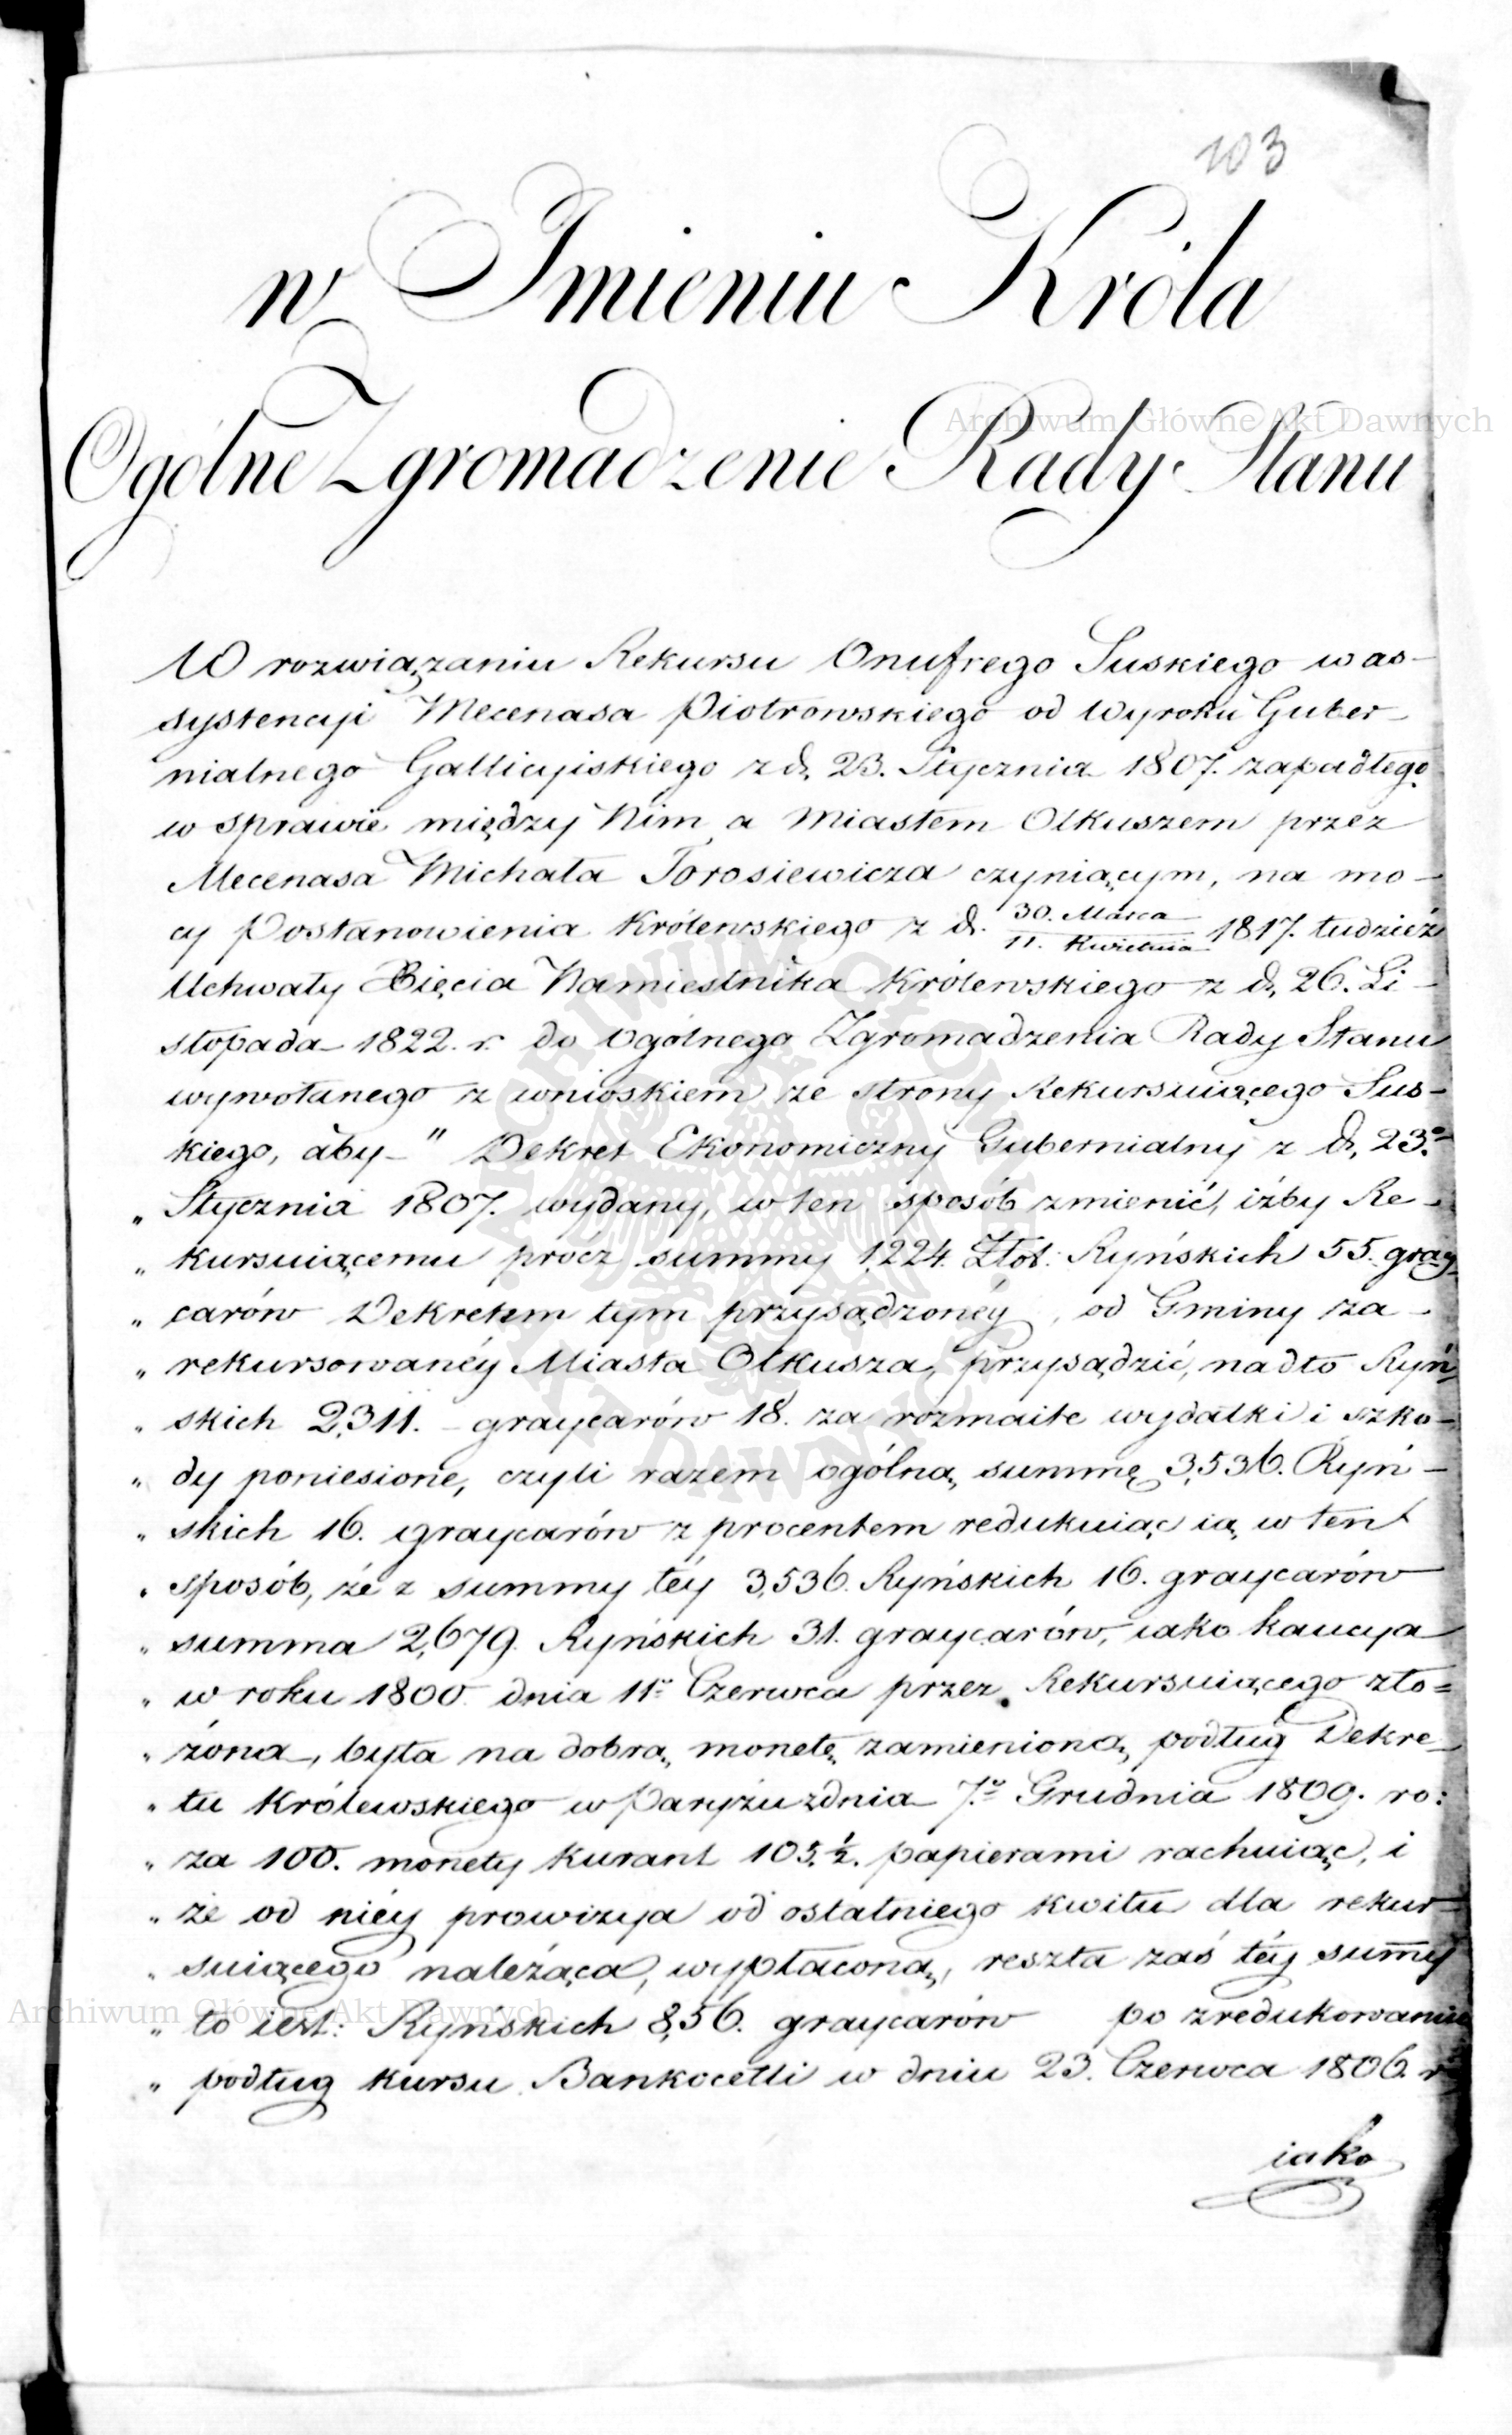 103
w Imieniu Króla
Ogólne Zgromadzenie Rady Stanu
W rozwiązaniu Rekursu Onufrego Suskiego w as-
systencyi Mecenasa Piotrowskiego od Wyroku Guber-
nialnego Gallicyiskiego z d. 23. Stycznia 1807. zapadłego
w sprawie między Nim a Miastem Olkuszem przez
Mecenasa Michała Torosiewicza czyniącym, na mo-
cy Postanowienia Królewskiego z d. 30. Marca / 11. Kwietnia 1817. tudzież
Uchwały Xięcia Namiestnika Królewskiego z d. 26. Li-
stopada 1822. r. do Ogólnego Zgromadzenia Rady Stanu
wywołanego z wnioskiem ze strony Rekursuiącego Sus-
kiego, aby " Dekret Ekonomiczny Gubernialny z d. 23.o
„ Stycznia 1807. wydany, w ten sposób zmienić, iżby Re-
„ kursuiącemu prócz summy 1,224. Złot: Ryńskich 55. gray-
„ carów Dekretem tym przysądzonéy, od Gminy za-
„ rekursowanéy Miasta Olkusza, przysądzić, nadto Ryń-
„ skich 2,311. - graycarów 18. za rozmaite wydatki i szko-
„ dy poniesione, czyli razem ogólną summę 3,536. Ryń-
„ skich 16. graycarów z procentem redukuiąc ią w ten
„ sposób, że z summy téy 3,536. Ryńskich 16. graycarów
„ summa 2,679. Ryńskich 31. graycarów, iako kaucya
„ w roku 1800. dnia 11o Czerwca przez Rekursuiącego zło=
„ żona, była na dobrą monetę zamienioną, podług Dekre-
„ tu Królewskiego w Paryżu z dnia 7.o Grudnia 1809. ro:
„ za 100. monety kurant 103.½. papierami rachuiąc, i
„ że od niéy prowizya od ostatniego kwitu dla rekur-
„ suiącego należąca, wypłaconą, reszta zaś téy summy
„ to iest: Ryńskich 8,56. graycarów po zredukowaniu
„ podług kursu Bankocetli w dniu 23. Czerwca 1806 r
iako
Archiwum Główne Akt Dawnych
Archiwum Główne Akt Dawnych
ARCHIWUM GŁÓWNE AKT DAWNYCH